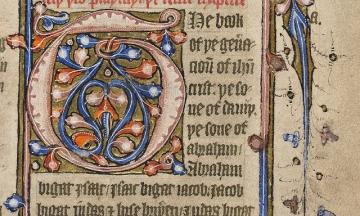 Þe book
of þe gena
cioun of ihu
crist. þe so
ne of dauiþ.
þe sone of
abraham/
Abraham
bigat ysaac/ ysaac bigat iacob/ iacob
bigat iudas & hise briþeren/ iudas bigat